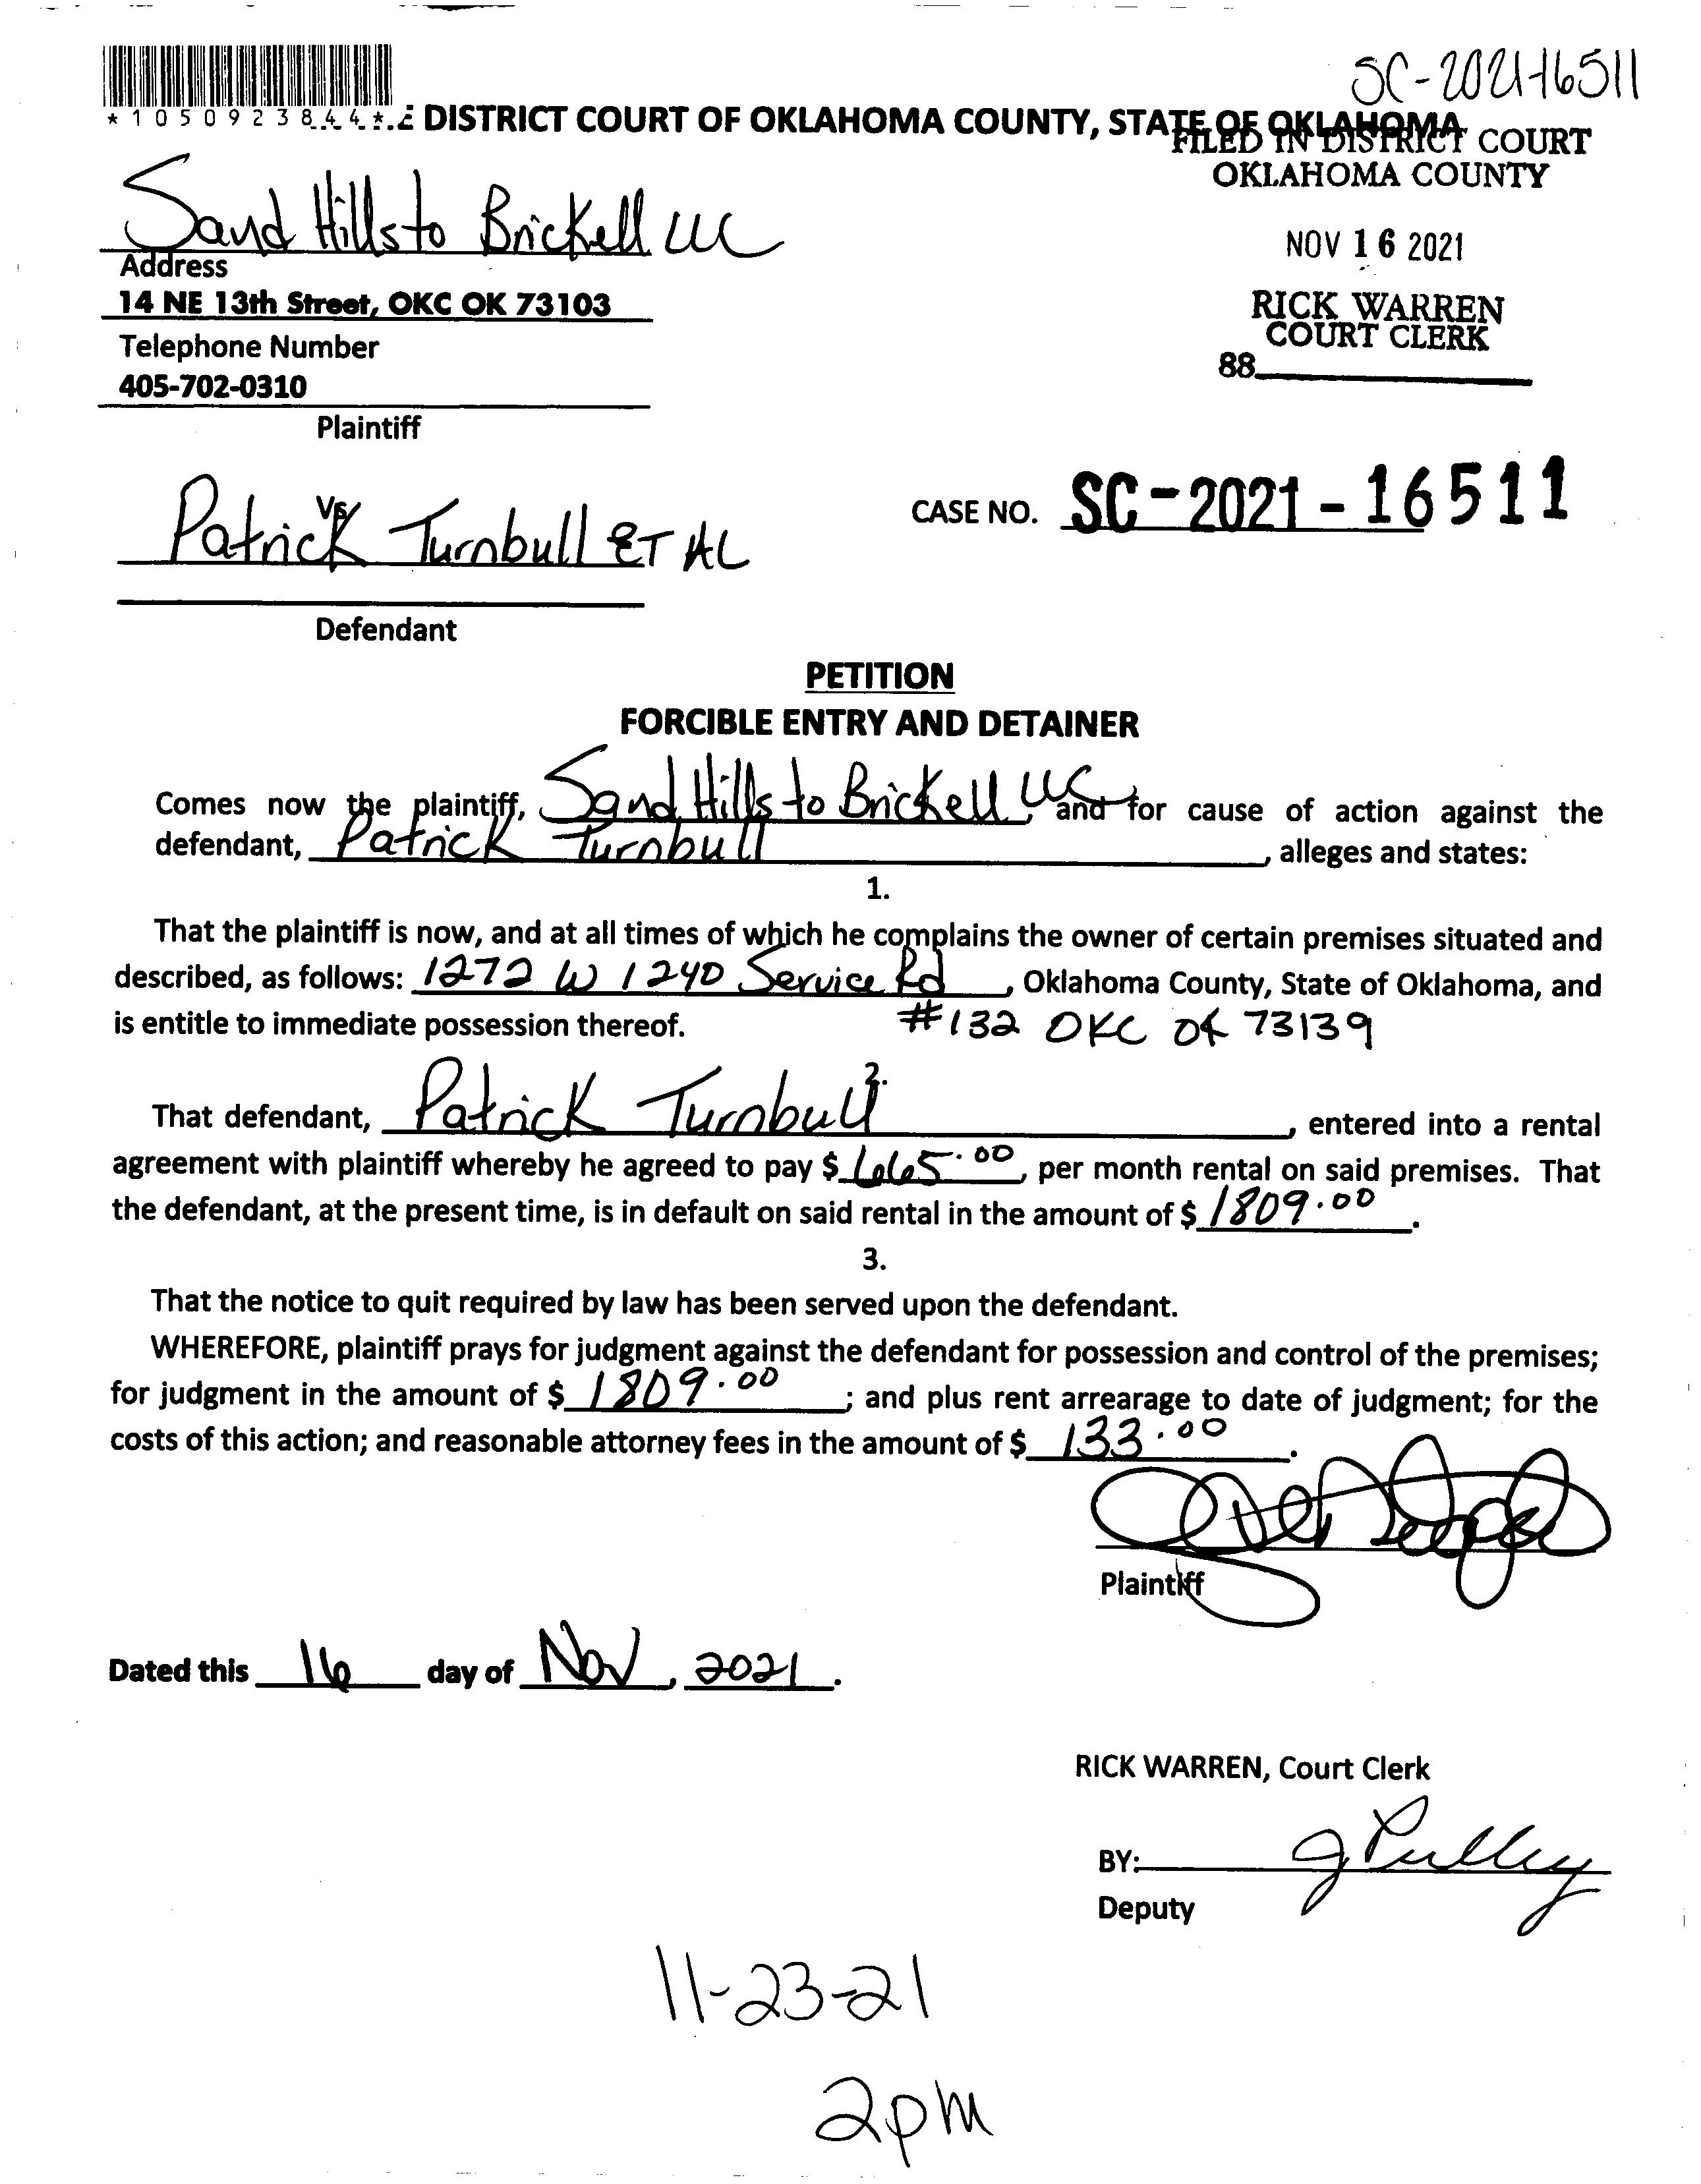 SC-2021-16511
*1050923844*
E DISTRICT COURT OF OKLAHOMA COUNTY, STATE OF OKLAHOMA
FILED IN DISTRICT COURT
OKLAHOMA COUNTY
Sand Hills to Brickell LLC
NOV 16 2021
Address
14 NE 13th Street, OKC OK 73103
RICK WARREN
COURT CLERK
Telephone Number
88
405-702-0310
Plaintiff
vs
CASE NO. SC-2021-16511
Patrick Turnbull ET AL
Defendant
PETITION
FORCIBLE ENTRY AND DETAINER
Comes now the plaintiff, Sand Hills to Brickell LLC, and for cause of action against the
defendant, Patrick Turnbull, alleges and states:
1.
That the plaintiff is now, and at all times of which he complains the owner of certain premises situated and
described, as follows: 1272 W I240 Service Rd, Oklahoma County, State of Oklahoma, and
is entitle to immediate possession thereof. #132 OKC OK 73139
2.
That defendant, Patrick Turnbull, entered into a rental
agreement with plaintiff whereby he agreed to pay $ 665.00, per month rental on said premises. That
the defendant, at the present time, is in default on said rental in the amount of $ 1809.00.
3.
That the notice to quit required by law has been served upon the defendant.
WHEREFORE, plaintiff prays for judgment against the defendant for possession and control of the premises;
for judgment in the amount of $ 1809.00; and plus rent arrearage to date of judgment; for the
costs of this action; and reasonable attorney fees in the amount of $ 133.00.
Plaintiff
Dated this 16 day of Nov, 2021.
RICK WARREN, Court Clerk
BY: J Pulley
Deputy
11-23-21
2pm